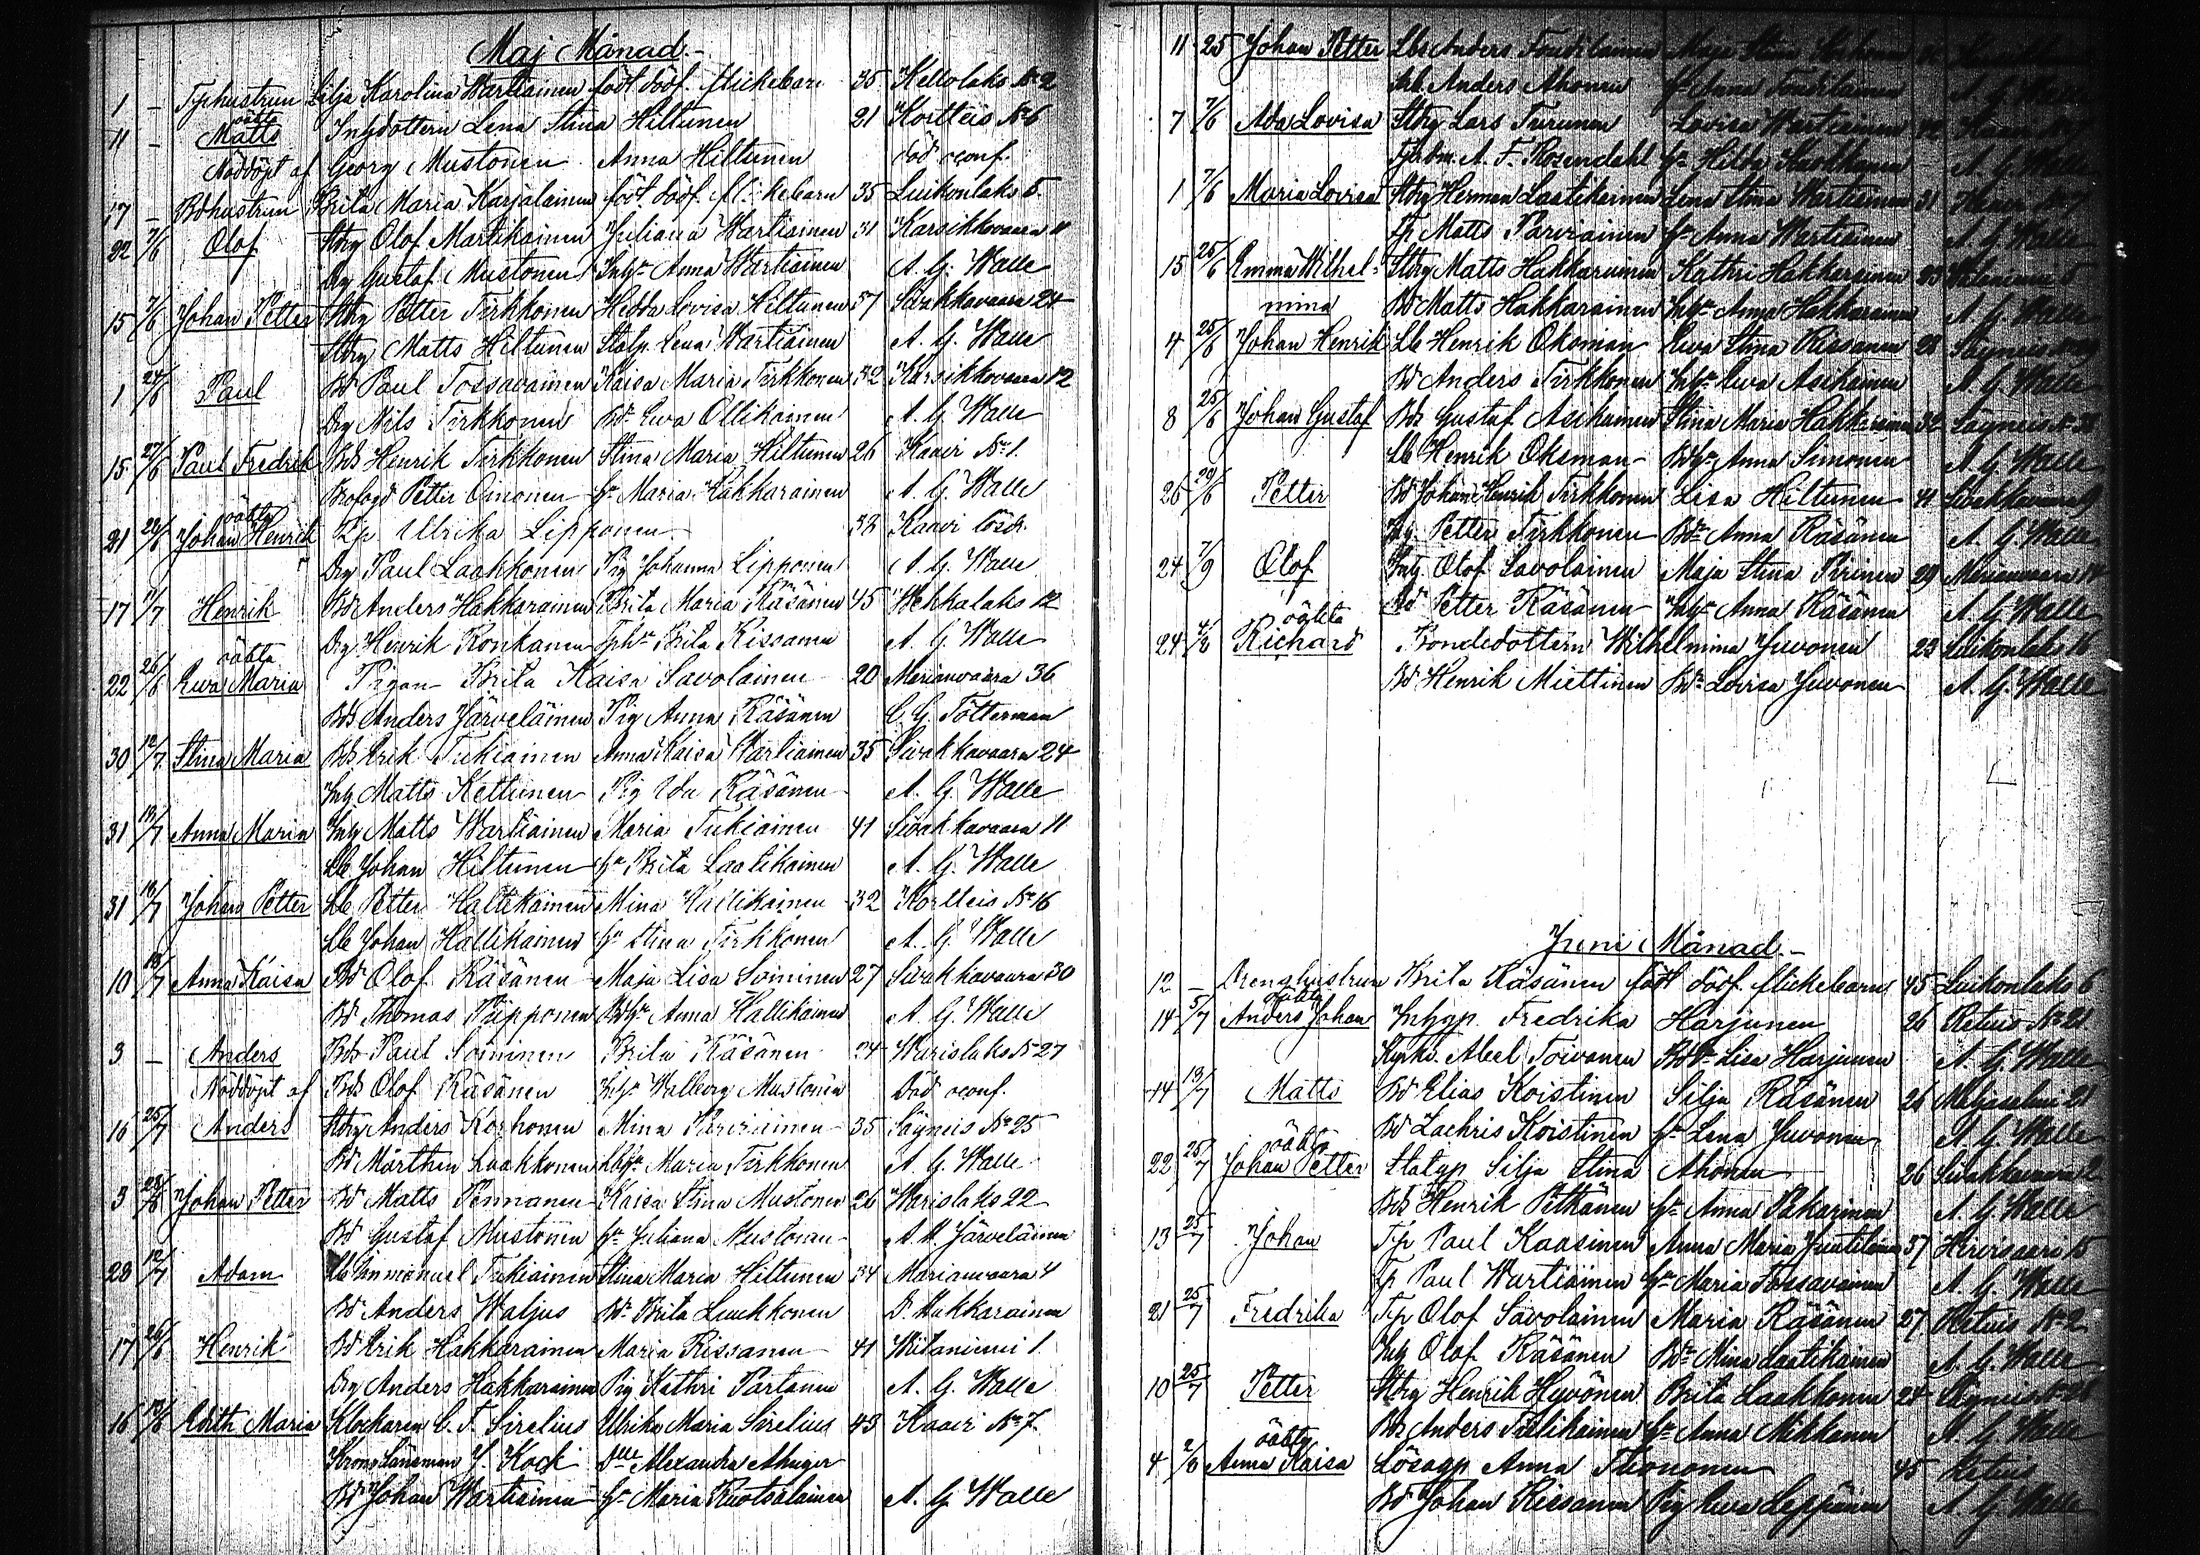 Maj Månad.
1 – Tjhustrun Silja Karolina Wartiainen födt dödf. flickebarn 35 Kellolaks № 2
oäkta
11 – Matts Inhdottern Lena Stina Hiltunen 21 Kortteis № 6
Nöddöpt af Georg Mustonen Anna Hiltunen död oconf.
17 – Bdhustrun Brita Maria Karjalainen födt dödf. flickebarn 35 Luikonlaks 5.
22 7/6 Olof Stbrg Olof Martikainen Juliana Wartiainen 31 Karsikkovaara 11
Drg Gustaf Mustonen Inhr Anna Wartiainen A. G. Walle
15 7/6 Johan Petter Stbrg Petter Tirkkonen Hedda Lovisa Hiltunen 37 Sivakkavaara 24
Stbrg Matts Hiltunen Statp. Lena Wartiainen A. G. Walle
1 24/6 Paul Bd Paul Tossavainen Kaisa Maria Tirkkonen 32 Karsikkovaara 12
Drg Nils Tirkkonen Bdr Ewa Ollikainen A. G. Walle
15 27/6 Paul Fredrik Bds Henrik Tirkkonen Stina Maria Hiltunen 26 Kaavi № 1.
Brofogd Petter Oinonen hr Maria Hakkarainen A. G. Walle
oäkta
21 22/6 Johan Henrik Pp. Ulrika Lipponen 32 Kaavi lösdr.
Drg Paul Laakkonen Pig Johanna Lipponen A. G. Walle
17 11/7 Henrik Bd Anders Hakkarainen Brita Maria Räsänen 45 Wehkalaks 12
Drg Henrik Ronkanen Tphr Brita Rissanen A. G. Walle
oäkta
22 26/6 Ewa Maria Pigan Brita Kaisa Savolainen 20 Marianvaara 36
Bds Anders Järveläinen Pig Anna Räsänen C. G. Tötterman
30 12/7 Stina Maria Bds Erik Tukiainen Anna Kaisa Wartiainen 35 Sivakkavaara 24
Inh Matts Kettunen Pig Ida Räsänen A. G. Walle
31 13/7 Anna Maria Inh Matts Wartiainen Maria Tukiainen 41 Sivakkavaara 11
Lb Johan Hiltunen hr Brita Laatikainen A. G. Walle
31 13/7 Johan Petter Lb Petter Hallikainen Mina Hallikainen 32 Kortteis № 16
Lb Johan Hallikainen hr Stina Tirkkonen A. G. Walle
10 13/7 Anna Kaisa Bd Olof Räsänen Maja Lisa Soininen 27 Sivakkavaara 30
Bd Thomas Piipponen Bdhr Anna Hallikainen A. G. Walle
3 – Anders Bds Paul Soininen Brita Räsänen 34 Warislaks № 27
Nöddöpt af Bds Olof Räsänen Inhr Walborg Mustonen Död oconf.
16 25/7 Anders Stbrg Anders Korhonen Mina Parviainen 35 Säyneis № 25
Bd Mårthen Laakkonen Lbhr Maria Tirkkonen A. G. Walle
3 Johan Petter Bd Matts Pennanen Kaisa Stina Mustonen 26 Warislaks 22
Bd Gustaf Mustonen hr Juliana Mustonen A. H. Järveläinen
28 12/7 Adam Lb Immanuel Tukiainen Stina Maria Hiltunen 34 Marianvaara 4
Bd Anders Waljus Bdr Brita Luukkonen D. Hakkarainen
17 26/6 Henrik Bd Erik Hakkarainen Maria Rissanen 41 Witaniemi 1.
Drg Anders Hakkarainen Pig Kathri Partanen A. G. Walle
16 Edith Maria Klockaren C. F. Sirelius Ulrika Maria Sirelius 43 Kaavi № 7.
Kronolänsman J. Kock Dlle Alexandra
Bd Johan Wartiainen hr Maria Ruotsalainen A. G. Walle
11 25 Johan Petter Lbs Anders Tondilainen Maja Stina
Inh. Anders Ahonen hr Anna Tondilainen A. G. Walle
7 7/6 Ada Lovisa Stbrg Lars Turunen Lovisa Wartiainen
A. F. Rosendahl hr Hilda A. G. Walle
1 7/6 Maria Lovisa Stbrg Herman Laatikainen Lena Stina Wartiainen 31
Tp Matts Parviainen hr Anna Wartiainen A. G. Walle
15 25/6 Emma Wilhel- Stbrg Matts Hakkarainen Kathri Hakkarainen
mina Bd Matts Hakkarainen Inhr Anna Hakkarainen A. G. Walle
4 25/6 Johan Henrik Lb Henrik Oksman Ewa Stina Räsänen 28 Säyneis
Bd Anders Tirkkonen Inhr Ewa Asikainen A. G. Walle
8 25/6 Johan Gustaf Bds Gustaf Asikainen Stina Maria Hakkarainen 34 Säyneis
Lb Henrik Oksman Bdhr Anna Simonen A. G. Walle
26 29/6 Petter Bd Johan Henrik Tirkkonen Lisa Hiltunen 41 Sivakkavaara
Inh. Petter Tirkkonen Bdr Anna Räsänen A. G. Walle
24 7/9 Olof Inh. Olof Savolainen Maja Stina Pirinen 29 Marianvaara
Bd Petter Räsänen Inhr Anna Räsänen A. G. Walle
oäkta
24 Richard Bondedottern Wilhelmina Juvonen 23 Luikonlaks 16
Bd Henrik Miettinen Bdr Lovisa Juvonen A. G. Walle
Juni Månad.
12 – Drenghustrun Brita Räsänen födt dödf. flickebarn 45 Luikonlaks 6
oäkta
14 5/7 Anders Johan Inhgp. Fredrika Harjunen 26 Retuis № 21
Kyrkv. Abel Toivanen Bdr Lisa Harjunen A. G. Walle
14 13/7 Matts Bd Elias Koistinen Silja Räsänen 26
Bd Zachris Koistinen hr Lena Juvonen A. G. Walle
oäkta
22 25/7 Johan Petter Statgp Silja Stina Ahonen 26 Sivakkavaara 2
Bds Henrik Pitkänen hr Anna Pakarinen A. G. Walle
13 25/7 Johan Tp Paul Kaasinen Anna Maria Juutilainen 37 Hirvivaara 15
Tp Paul Wartiainen hr Maria Tossavainen A. G. Walle
21 25/7 Fredrika Tp Olof Savolainen Maria Räsänen 27 Retuis № 2
Inh Olof Räsänen Bdr Mina Laatikainen A. G. Walle
10 25/7 Petter Stbrg Henrik Hyvönen Brita Laakkonen 24 Säyneis
Bds Anders Tiilikainen hr Anna Mikkanen A. G. Walle
oäkta
4 2/8 Anna Kaisa Lösagp Anna Thononen 45 Retuis
Bd Johan Rissanen Pig Ewa Leppänen A. G. Walle